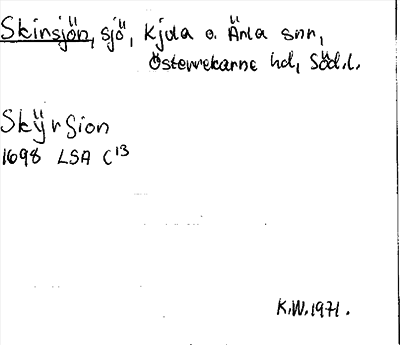 Skinsjön, sjö, Kjula o. Ärla snr,
Österrekarne hd, Söd.l.
Skÿrsion
1698 LSA C13
K.W. 1971.